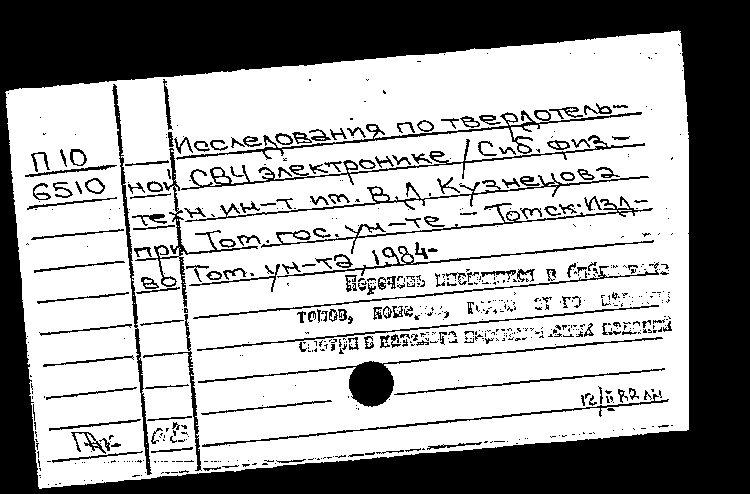 П 10
6510
Исследования по твердотель-
ной СВЧ электронике / Сиб. физ.-
техн. ин-т им. В.Д. Кузнецова
при Том. гос. ун-те. - Томск: Изд-
во Том. ун-та, 1984-
Перечень имеющихся в библиотеке
томов, номеров, годов
смотри в каталоге периодических изданий